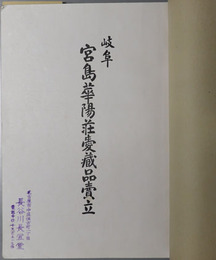 岐阜
宮島華陽荘愛蔵品賣立
長谷川長宜堂